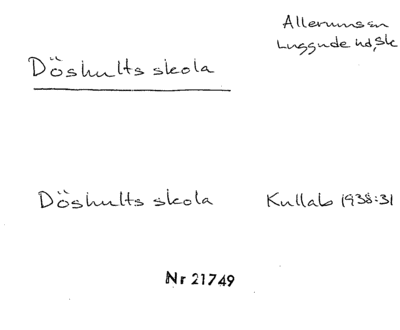 Allerums sn
Luggude hd, Sk
Döshults skola
Döshults skola Kullab 1938:31
Nr 21749